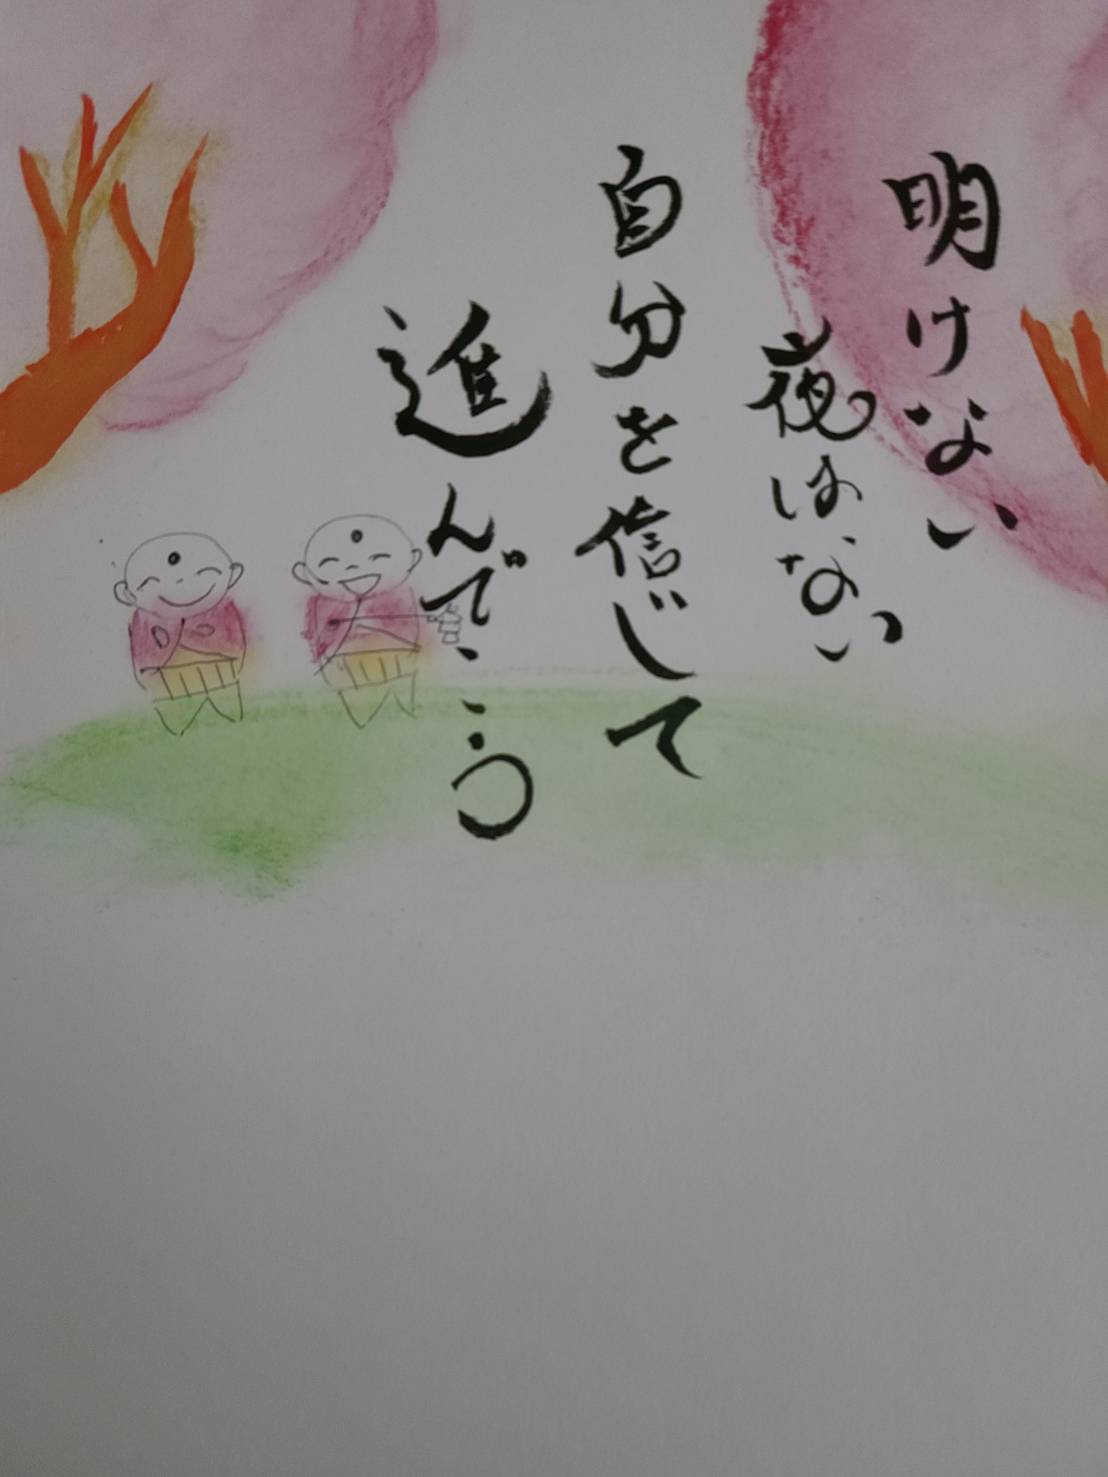 明けない
夜はない
自分を信じて
進んでこう